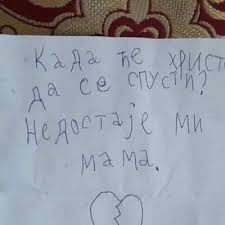 Када ће христ
да се спусти?
Недостаје ми
мама.